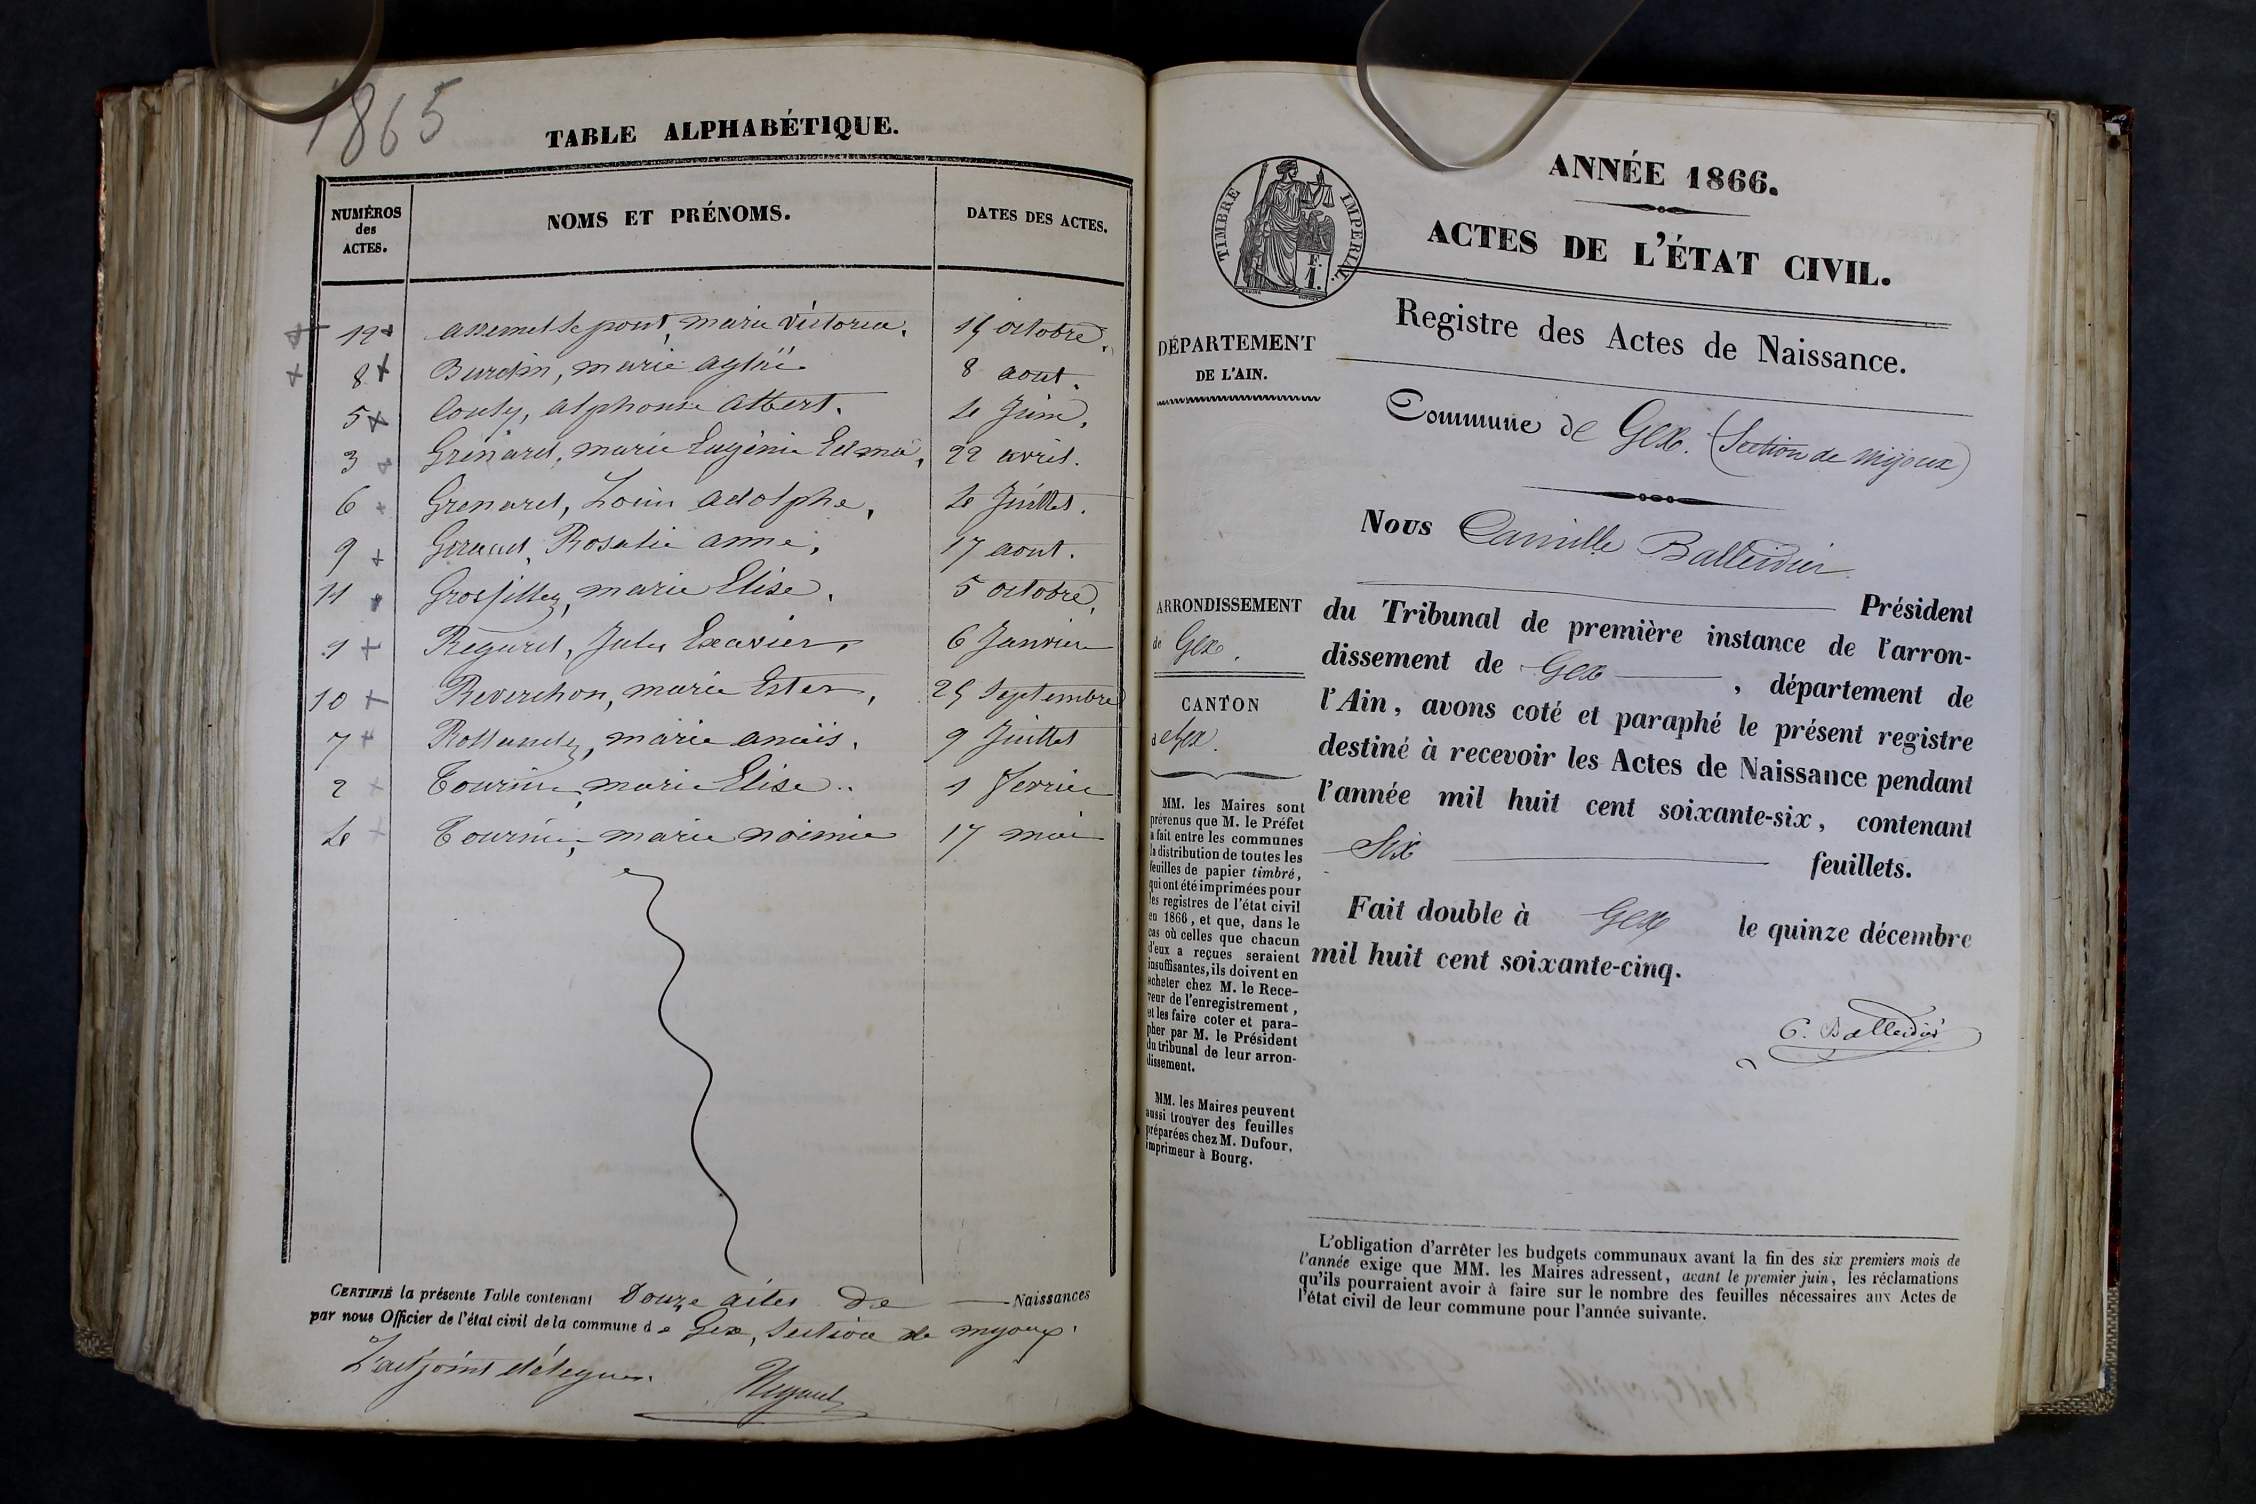 1865
TABLE ALPHABÉTIQUE.
NUMÉROS des ACTES. NOMS ET PRÉNOMS. DATES DES ACTES.
12 marie victoria. 15 octobre.
8 Burdin, marie aglaé 8 aout.
5 alphonse albert. 4 Juin.
3 Grenard, marie Eugénie Edma, 22 avril.
6 Grenard, Louis adolphe, 4 Juillet.
9 Giraud, Rosalie anne, 17 aout.
11 Grosfilley, marie Elise. 5 octobre,
1 Regard, Jules Exavier, 6 Janvier
10 Reverchon, marie Ester, 25 Septembre
7 Rollandez, marie anaïs. 9 Juillet
2 Tournier, marie Elise.. 1 Fevrier
4 Tournier, marie noimie 17 mai
CERTIFIÉ la présente Table contenant Douze actes de Naissances
par nous Officier de l'état civil de la commune de Gex, Section de mijoux.
L'adjoint délégué.
Regard
ANNÉE 1866.
ACTES DE L'ÉTAT CIVIL.
TIMBRE IMPÉRIAL.
F.
1.
Registre des Actes de Naissance.
DÉPARTEMENT
DE L'AIN.
Commune de Gex. (Section de mijoux)
Nous Camille Balleidier
Président
du Tribunal de première instance de l'arron-
dissement de Gex, département de
l'Ain, avons coté et paraphé le présent registre
destiné à recevoir les Actes de Naissance pendant
l'année mil huit cent soixante-six, contenant
Six feuillets.
Fait double à Gex le quinze décembre
mil huit cent soixante-cinq.
C. Balleidier
ARRONDISSEMENT
de Gex.
CANTON
de Gex.
MM. les Maires sont
prévenus que M. le Préfet
a fait entre les communes
la distribution de toutes les
feuilles de papier timbré,
qui ont été imprimées pour
les registres de l'état civil
en 1866, et que, dans le
cas où celles que chacun
d'eux a reçues seraient
insuffisantes, ils doivent en
acheter chez M. le Rece-
veur de l'enregistrement,
et les faire coter et para-
pher par M. le Président
du tribunal de leur arron-
dissement.
MM. les Maires peuvent
aussi trouver des feuilles
préparées chez M. Dufour,
imprimeur à Bourg.
L'obligation d'arrêter les budgets communaux avant la fin des six premiers mois de
l'année exige que MM. les Maires adressent, avant le premier juin, les réclamations
qu'ils pourraient avoir à faire sur le nombre des feuilles nécessaires aux Actes de
l'état civil de leur commune pour l'année suivante.